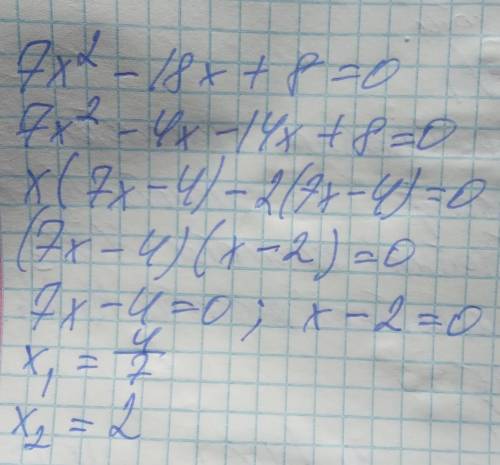 7x² - 18x + 8 = 0
7x² - 4x - 14x + 8 = 0
x(7x - 4) - 2(7x - 4) = 0
(7x - 4)(x - 2) = 0
7x - 4 = 0; x - 2 = 0
x₁ = 4/7
x₂ = 2